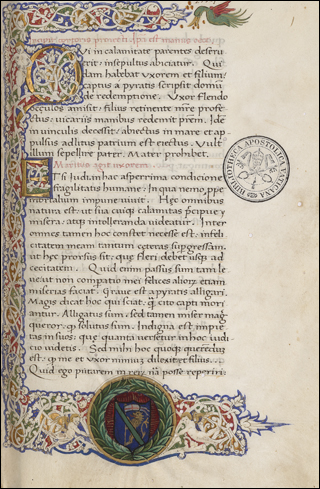 Qui in calamitate parentes deseru
erit insepultus abiciatur. Qui
dam habebat uxorem et filium:
captus a pyratis scripsit domũ
de redemptione. Uxor flendo
occulos amisit: filius retinente mr̃e profe
ctus: uicariis manibus redemit prẽm. Ide
m in uinculis decessit: abiectus in mare et ap
pulsus ad litus patrium est euectus. Vult
illum sepellire pater. Mater prohibet.
Maritus agit uxorem
Tsi Iudi. hac asperrima condicione
fragilitatis humane: In qua nemo, ppe
mortalium impune uiuit. Hęc omnibus
natura est: ut sua cuiq; calamitas p̃cipue y
misera: atq; intolleranda uideatur. Inter
omnes tamen hoc constet necesse est: infeli
citatem meam tantum ceteras supgressam:
ut hec prorsus sit: que flere debet usq; ad
cecitatem. Quid enim passus sum tam le
ue: ut non compatio mei felices alioq;
miserias faciat. Graue est a pyratis alligari.
Magis dicat hoc qui sciat, cito capti mori
antur. Alligatus sum: sed tamen miser mag
queror: solutus sum. Indigna est: impie
tas in suos: que quanta uersetur in hoc iudi
cio uidetis. Sed mihi hoc quoq;
est: me et uxor nimium dilexit et filius.
Quid ego putarem in nã posse reperiri:
BIBLIOTHECA APOSTOLICA VATICANA